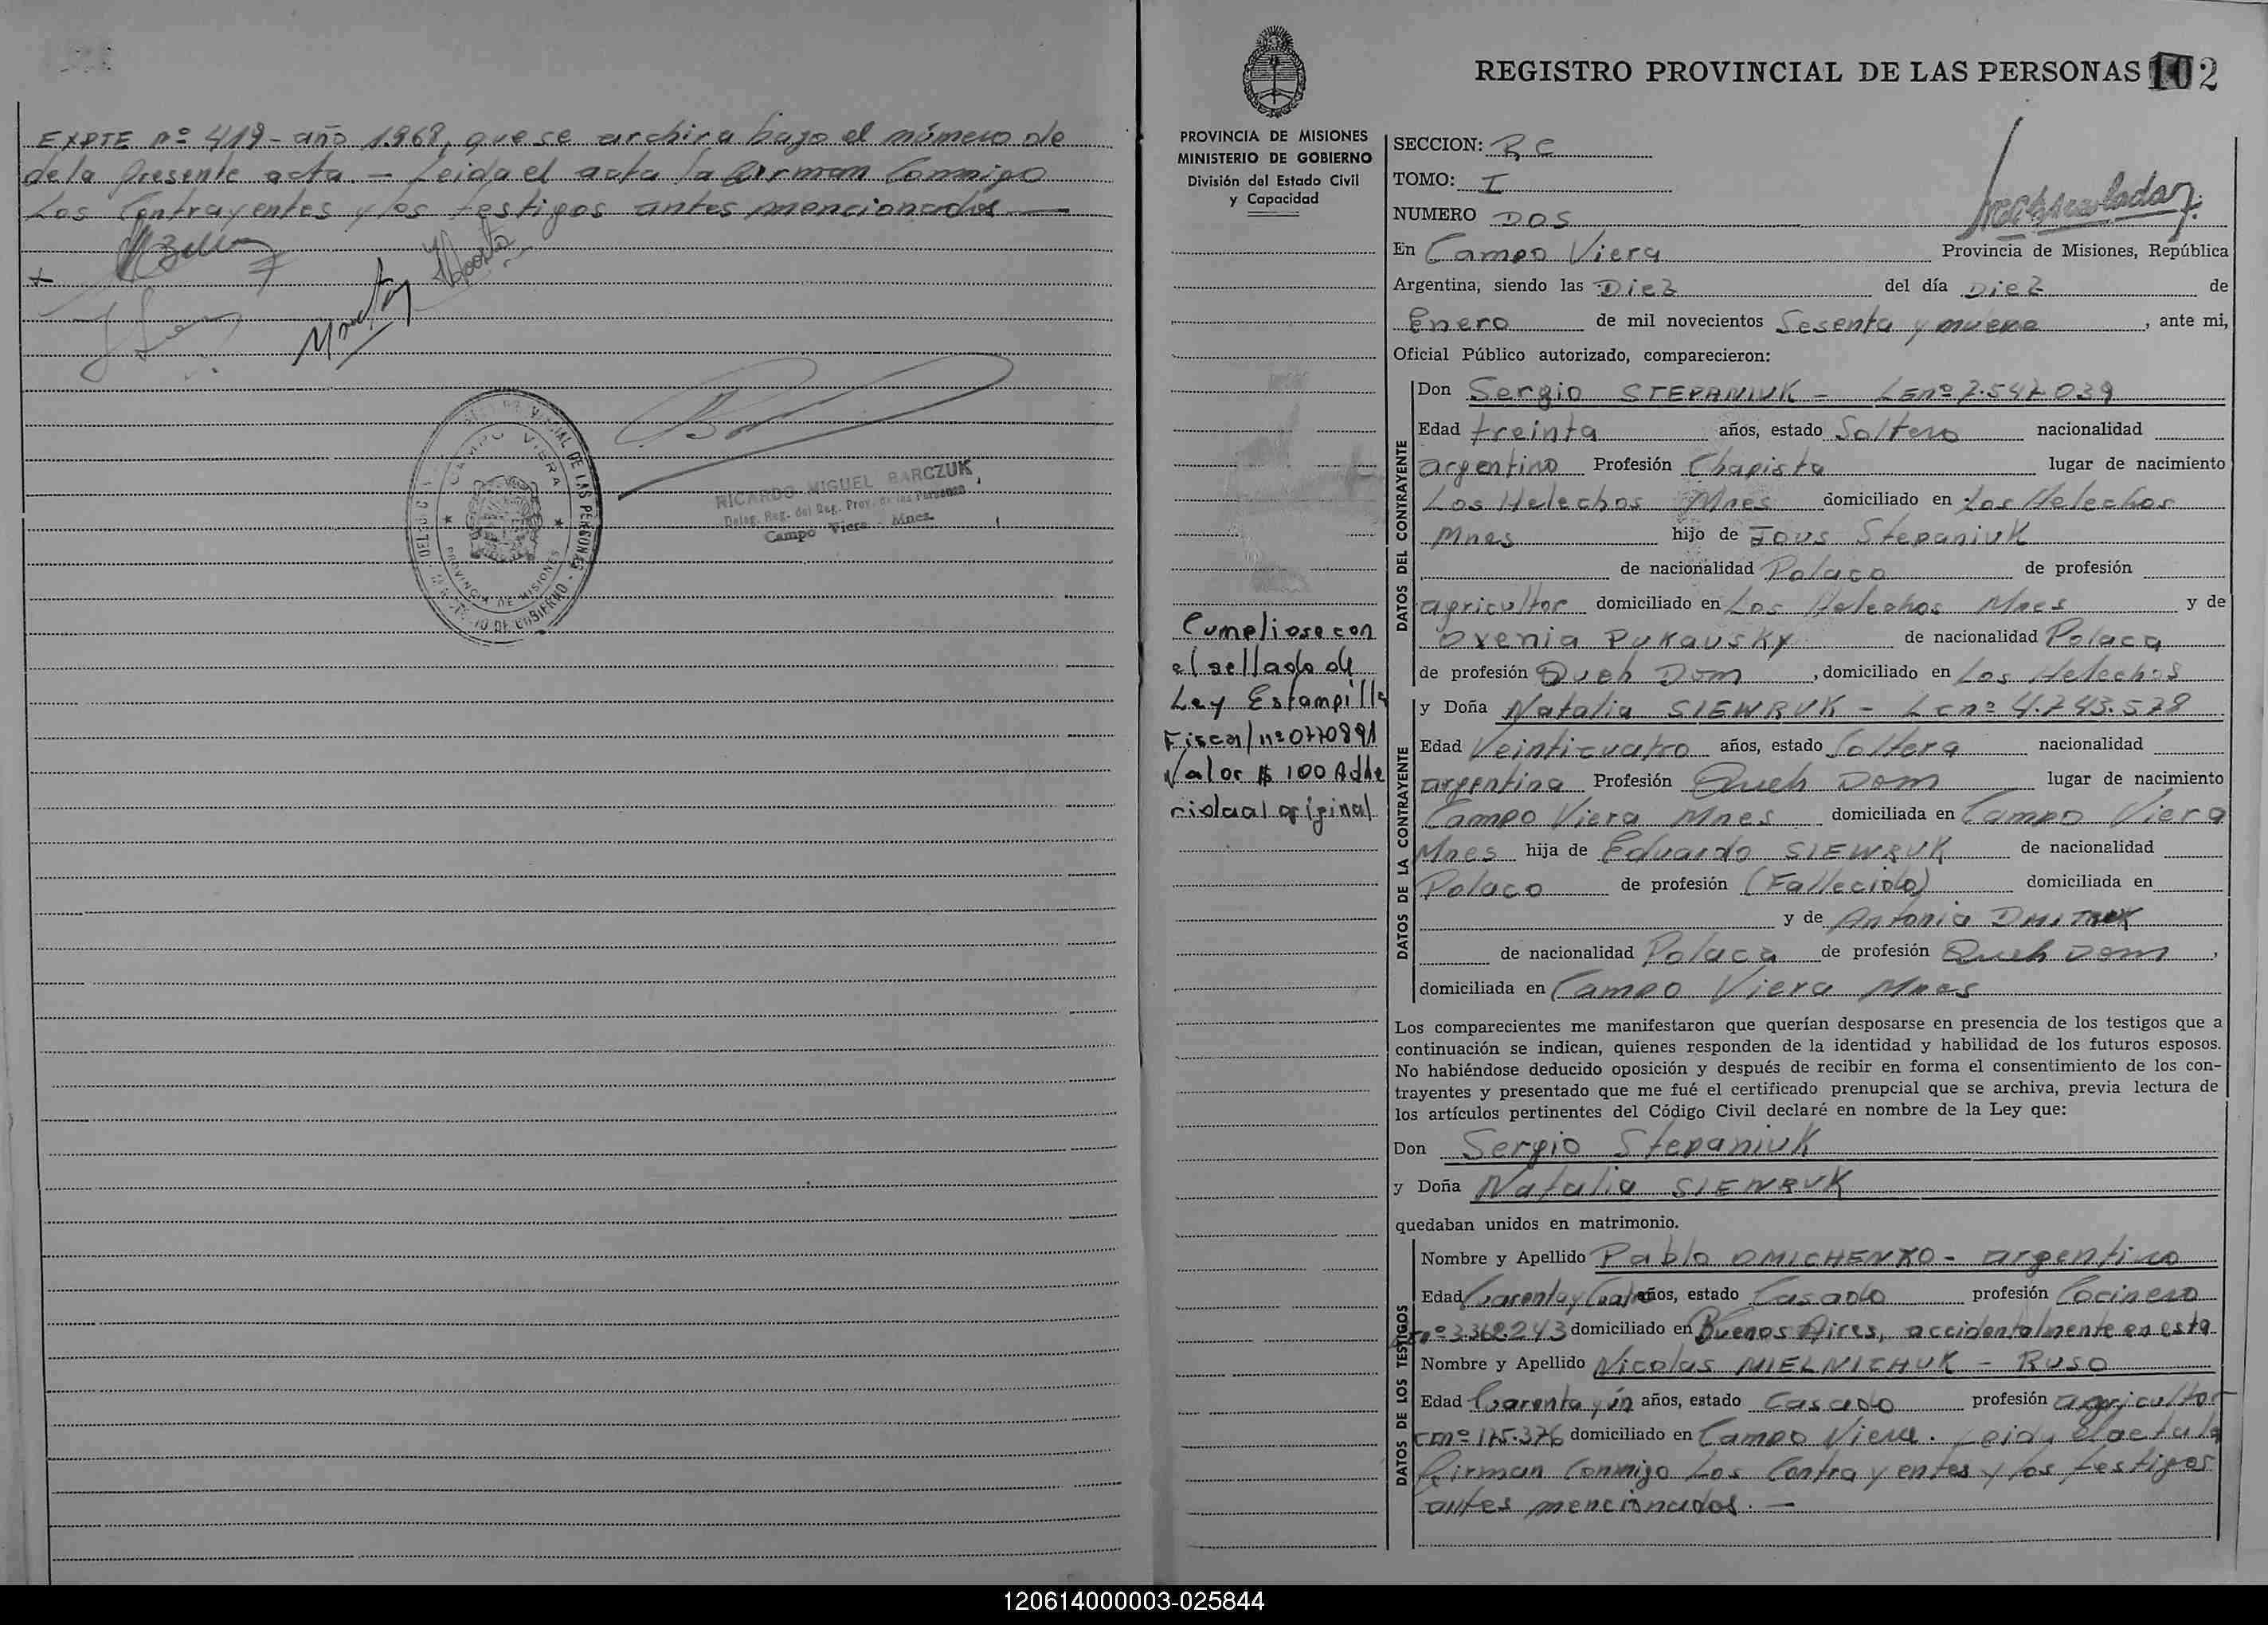 EXPTE nº 419 - año 1.968, que se archiva bajo el número de
de la presente acta. — Leida el acta la firman Conmigo
Los Contrayentes y los testigos antes mencionados —
RICARDO MIGUEL BARCZUK
Deleg. Reg. del Reg. Prov. de las Personas
Campo Viera - Mnes.
CAMPO VIERA
PROVINCIA DE MISIONES
REGISTRO PROVINCIAL DE LAS PERSONAS 102
PROVINCIA DE MISIONES
MINISTERIO DE GOBIERNO
División del Estado Civil
y Capacidad
Cumpliose con
el sellado de
Ley Estampilla
Fiscal nº 0770891
Valor $ 100 Adhe
rida al original
SECCION: RC
TOMO: I
NUMERO DOS
En Campo Viera Provincia de Misiones, República
Argentina, siendo las Diez del día Diez de
Enero de mil novecientos Sesenta y nueve, ante mi,
Oficial Público autorizado, comparecieron:
DATOS DEL CONTRAYENTE
Don Sergio STEPANIUK - LEnº 7.547.039
Edad treinta años, estado Soltero nacionalidad
argentino Profesión Chapista lugar de nacimiento
Los Helechos Mnes domiciliado en Los Helechos
Mnes hijo de Stepaniuk
de nacionalidad Polaco de profesión
agricultor domiciliado en Los Helechos Mnes y de
Oxenia PUKAUSKY de nacionalidad Polaca
de profesión Queh Dom, domiciliado en Los Helechos
DATOS DE LA CONTRAYENTE
y Doña Natalia SIEWRUK - Lcnº 4.743.578
Edad Veinticuatro años, estado Soltera nacionalidad
argentina Profesión Queh Dom lugar de nacimiento
Campo Viera Mnes domiciliada en Campo Viera
Mnes hija de Eduardo SIEWRUK de nacionalidad
Polaco de profesión (Fallecido) domiciliada en
y de Antonia
de nacionalidad Polaca de profesión Queh Dom,
domiciliada en Campo Viera Mnes
Los comparecientes me manifestaron que querían desposarse en presencia de los testigos que a
continuación se indican, quienes responden de la identidad y habilidad de los futuros esposos.
No habiéndose deducido oposición y después de recibir en forma el consentimiento de los con-
trayentes y presentado que me fué el certificado prenupcial que se archiva, previa lectura de
los artículos pertinentes del Código Civil declaré en nombre de la Ley que:
Don Sergio Stepaniuk
y Doña Natalia SIEWRUK
quedaban unidos en matrimonio.
DATOS DE LOS TESTIGOS
Nombre y Apellido Pablo OMICHENKO - argentino
Edad Cuarenta y Cuatro años, estado Casado profesión Cocinero
nº 3.362.243 domiciliado en Buenos Aires, accidentalmente en esta
Nombre y Apellido Nicolas MIELNICHUK - RUSO
Edad Cuarenta y ún años, estado Casado profesión agricultor
cmº 175.376 domiciliado en Campo Viera. Leida el acta la
firman Conmigo Los Contrayentes y los testigos
antes mencionados. —
120614000003-025844